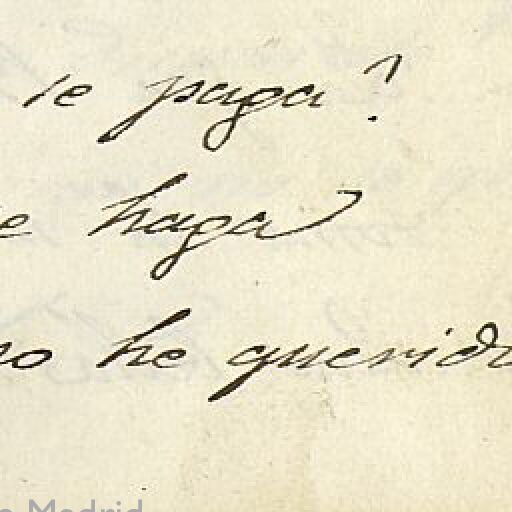 se paga?
e haga
no he querido
Madrid